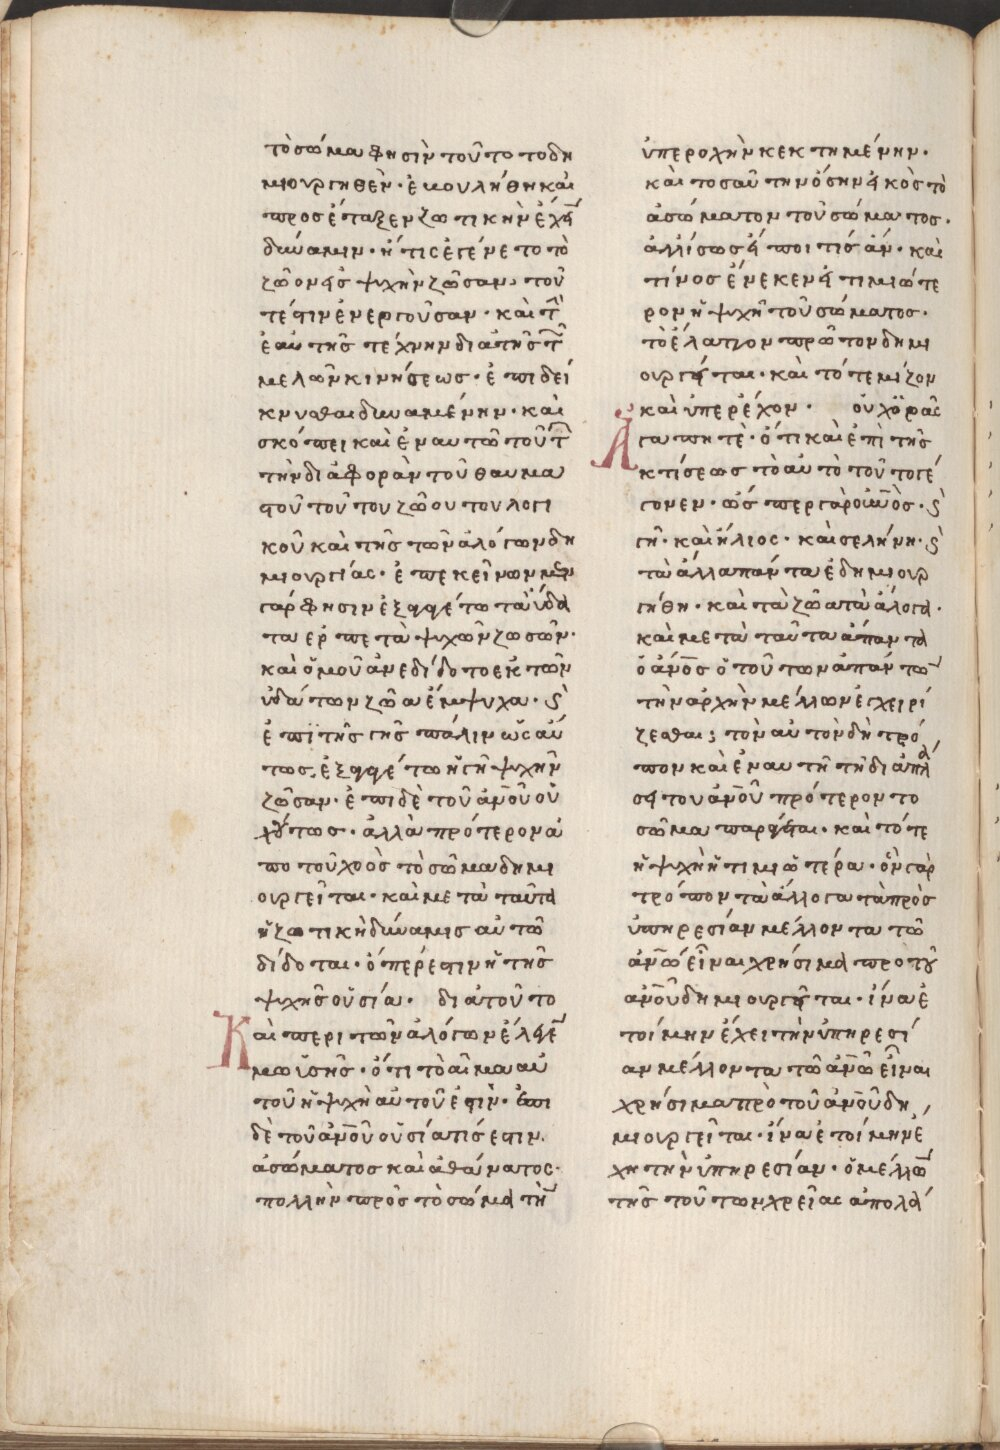 τὸ σώμα φησὶν τοῦτο το δη
μιουργηθὲν · ἐμουλήθη καὶ
προσέταξεν ζωτικὴν ἔχει
δύναμιν · ἥτις ἐγένετο τὸ
ζῶον εἰς ψυχὴν ζῶσαν, του
τέστιν ἐνεργοῦσαν · καὶ τὴν
ἑαυτῆς τέχνην διὰ τῆς τῶν
μελῶν κινήσεως · ἐπιδεί
κνυσθαι δυναμένην · καὶ
σκόπει καὶ ἐναυτῶ τοῦτω
τὴν διαφορὰν τοῦ θαυμα
στοῦ τούτου ζώου του λογι
κοῦ καὶ τῆς τῶν ἀλόγων δη
μιουργίας · ἐπεκείνων μὲν
γάρ φησιν ἐξαγαγέτω τὰ ὕδα
τα ερπετὰ ψυχῶν ζωσῶν ·
καὶ ὁμοῦ ἀνεδίδοτο ἐκ τῶν
ὑδάτων ζῶα ἔμψυχα · ϗ
ἐπὶ τῆς γῆς πάλιν ὡσαύ
τως · ἐξαγαγέτω ἡ γῆ ψυχὴν
ζῶσαν · ἐπι δὲ τοῦ ἀνοῦ οὐ
χ οὕτως · ἀλλὰ πρότερον ἀ
πο τοῦ χοὸς τὸ σῶμα δημι
ουργεῖται · καὶ μετὰ ταῦτα
ἡ ζωτικὴ δύναμις αὐτῶ
δίδοται · ὅπερ ἐστιν ἡ τῆς
ψυχῆς οὐσία · διὰ τοῦτο
Καὶ περι τῶν ἀλόγων ἔλεγε
μωϋσῆς · ὅτι τὸ αἷμα αὐ
τοῦ ἡ ψυχὴ αὐτοῦ ἐστὶν · ἐπι
δὲ τοῦ ἀνοῦ οὐσία τίς ἐστιν.
ἀσώματος καὶ ἀθάνατος ·
πολλὴν πρὸς τὸ σώμα τὴν
ὑπεροχὴν κεκτημένην ·
καὶ τοσαύτην ὅσην εἰκὸς τὸ
ἀσώματον τοῦ σώματος ·
ἀλλ' ἴσως εἴποι τίς ἄν · καὶ
τίνος ἕνεκεν εἰ τιμιώτε
ρον ἡ ψυχῆ τοῦ σώματος ·
τὸ ἔλαττον πρῶτον δημι
ουργεῖται · καὶ τό τε μεῖζον
καὶ ὑπερέχον · οὐχ ὁρᾶς
Ἀγαπητὲ · ὅτι καὶ ἐπὶ τῆς
κτίσεως τὸ αὐτὸ τοῦτο γέ
γονεν · ὥσπερ γὰρ ουνὸς · ϗ
γῆ · καὶ ἥλιος · καὶ σελήνη · ϗ
τὰ ἄλλα πάντα ἐδημιουρ
γήθη · καὶ τὰ ζῶα τὰ ἄλογα ·
καὶ μετὰ ταῦτα ἅπαντα
ὁ ἄνος ὁ τούτων ἁπάντων
τὴν ἀρχὴν μέλλων ἐγχειρί
ζεσθαι ; τὸν αὐτὸν δὴ τρό
πον καὶ ἐναυτῆ τῆ διαπλά
σει του ἀνοῦ πρότερον το
σῶμα παράγεται · καὶ τότε
ἡ ψυχὴ ἡ τιμιωτέρα · ὃν γὰρ
τρόπον τὰ ἄλλογα τὰ πρὸς
ὑπηρεσίαν μέλλοντα τῶ
ἀνῶ εἶναι χρήσιμα προ τοῦ
ἀνοῦ δημιουργεῖται · ἵνα ἑ
τοίμην ἔχει τὴν ὑπηρεσί
αν μέλλοντα τῶ ἀνῶ εἶναι
χρήσιμα πρὸ τοῦ ἀνοῦ δη
μιουργεῖται · ἵνα ἑτοίμην ἔ
χη τὴν ὑπηρεσίαν · ὁ μέλλων
τῆς τούτων χρείας ἀπολά